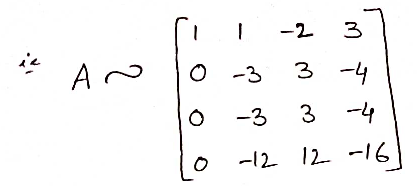 ie A ~ [ 1 1 -2 3
0 -3 3 -4
0 -3 3 -4
0 -12 12 -16 ]